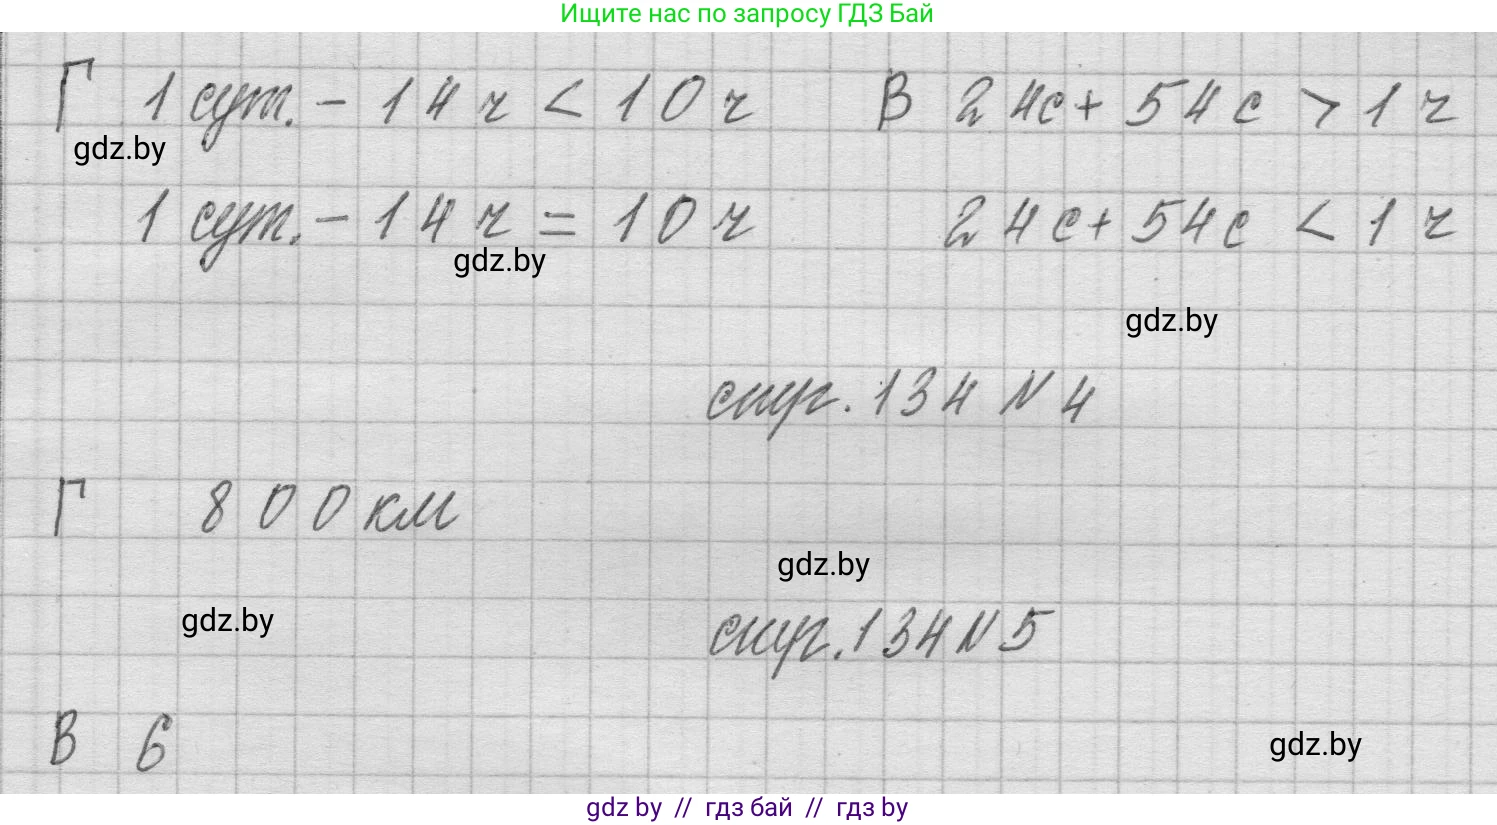 Ищите нас по запросу ГДЗ Бай
Г 1 сут. - 14 ч < 10 ч В 24с + 54с > 1 ч
gdz.by
1 сут. - 14 ч = 10 ч 24с + 54с < 1 ч
gdz.by
gdz.by
стр. 134 N 4
Г 800 км
gdz.by
gdz.by
стр. 134 N 5
В 6
gdz.by
gdz by // гдз бай // гдз by